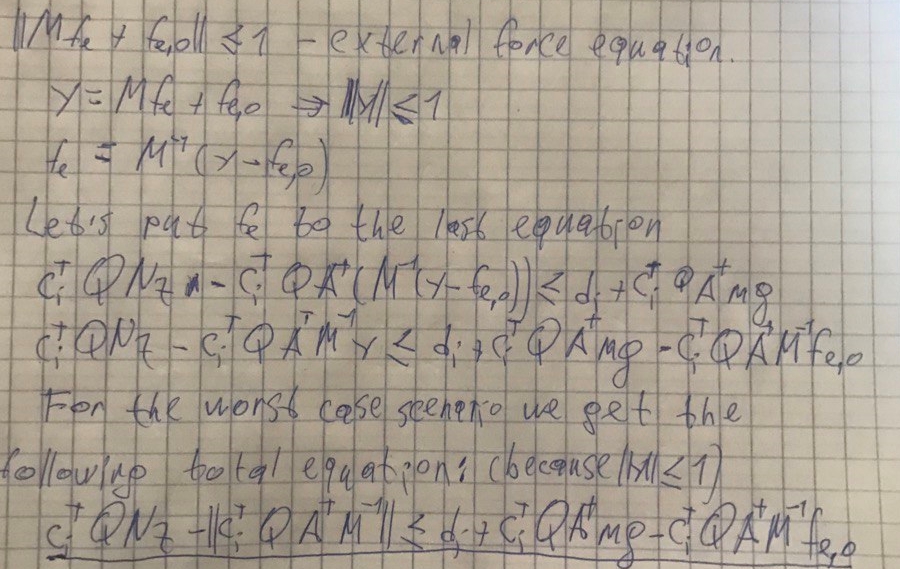 ||Mfₑ + fₑ,₀|| ≤ 1 - external force equation.
y = Mfₑ + fₑ,₀ ⇒ ||y|| ≤ 1
fₑ = M⁻¹(y - fₑ,₀)
Let's put fₑ to the last equation
cᵢᵀ Q N z - cᵢᵀ Q A⁺(M⁻¹(y - fₑ,₀)) ≤ dᵢ + cᵢᵀ Q A⁺ mg
cᵢᵀ Q N z - cᵢᵀ Q A⁺ M⁻¹ y ≤ dᵢ + cᵢᵀ Q A⁺ mg - cᵢᵀ Q A⁺ M⁻¹ fₑ,₀
For the worst case scenario we get the
following total equation: (because ||y|| ≤ 1)
cᵢᵀ Q N z - ||cᵢᵀ Q A⁺ M⁻¹|| ≤ dᵢ + cᵢᵀ Q A⁺ mg - cᵢᵀ Q A⁺ M⁻¹ fₑ,₀